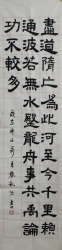 盡道隋亡為此河至今千里賴
通波若無水殿龍舟事共禹論
功不較多